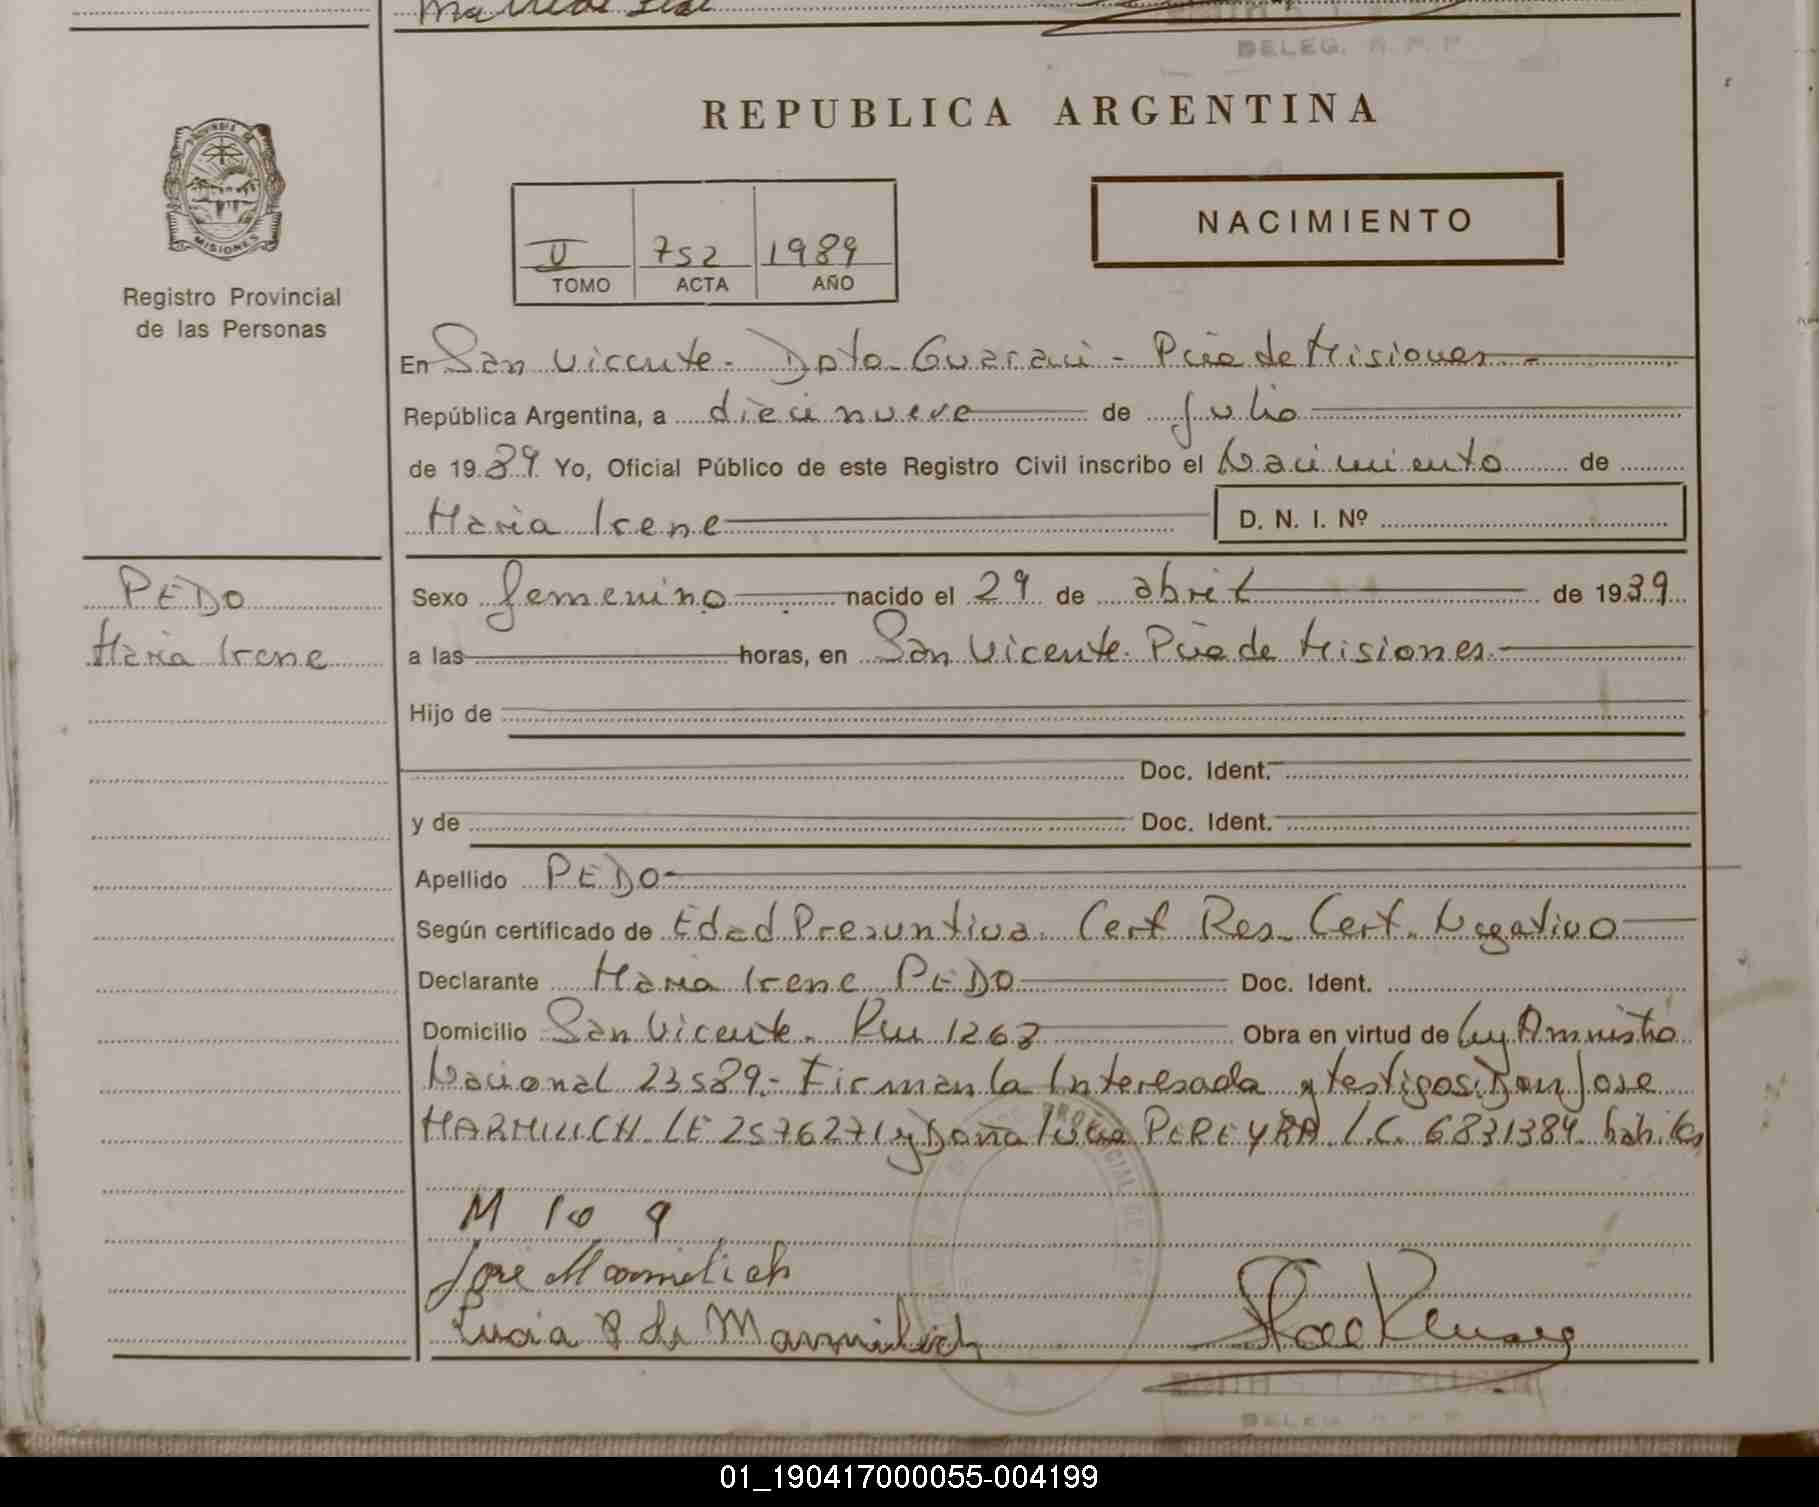 DELEG. R. P. P.
REPUBLICA ARGENTINA
PROVINCIA DE
MISIONES
Registro Provincial
de las Personas
II 752 1989
TOMO ACTA AÑO
NACIMIENTO
En San Vicente - Dpto. Guarani - Pcia de Misiones -
República Argentina, a diecinueve de Julio
de 1989 Yo, Oficial Público de este Registro Civil inscribo el Nacimiento de
Maria Irene D. N. I. Nº
PEDO
Maria Irene
Sexo femenino nacido el 29 de abril de 1939
a las horas, en San Vicente. Pcia de Misiones.
Hijo de
Doc. Ident.
y de Doc. Ident.
Apellido PEDO
Según certificado de Edad Presuntiva. Cert Res. Cert. Negativo
Declarante Maria Irene PEDO Doc. Ident.
Domicilio San Vicente. Km 1263 Obra en virtud de Ley Amnistia
Nacional 23589.- Firman la Interesada y testigos: Don Jose
MARMILICH LE 2576271 y Doña Lucia PEREYRA L.C. 6831384 habiles
Jose Marmilich
Lucia P de Marmilich
DELEG. R. P. P.
01_190417000055-004199